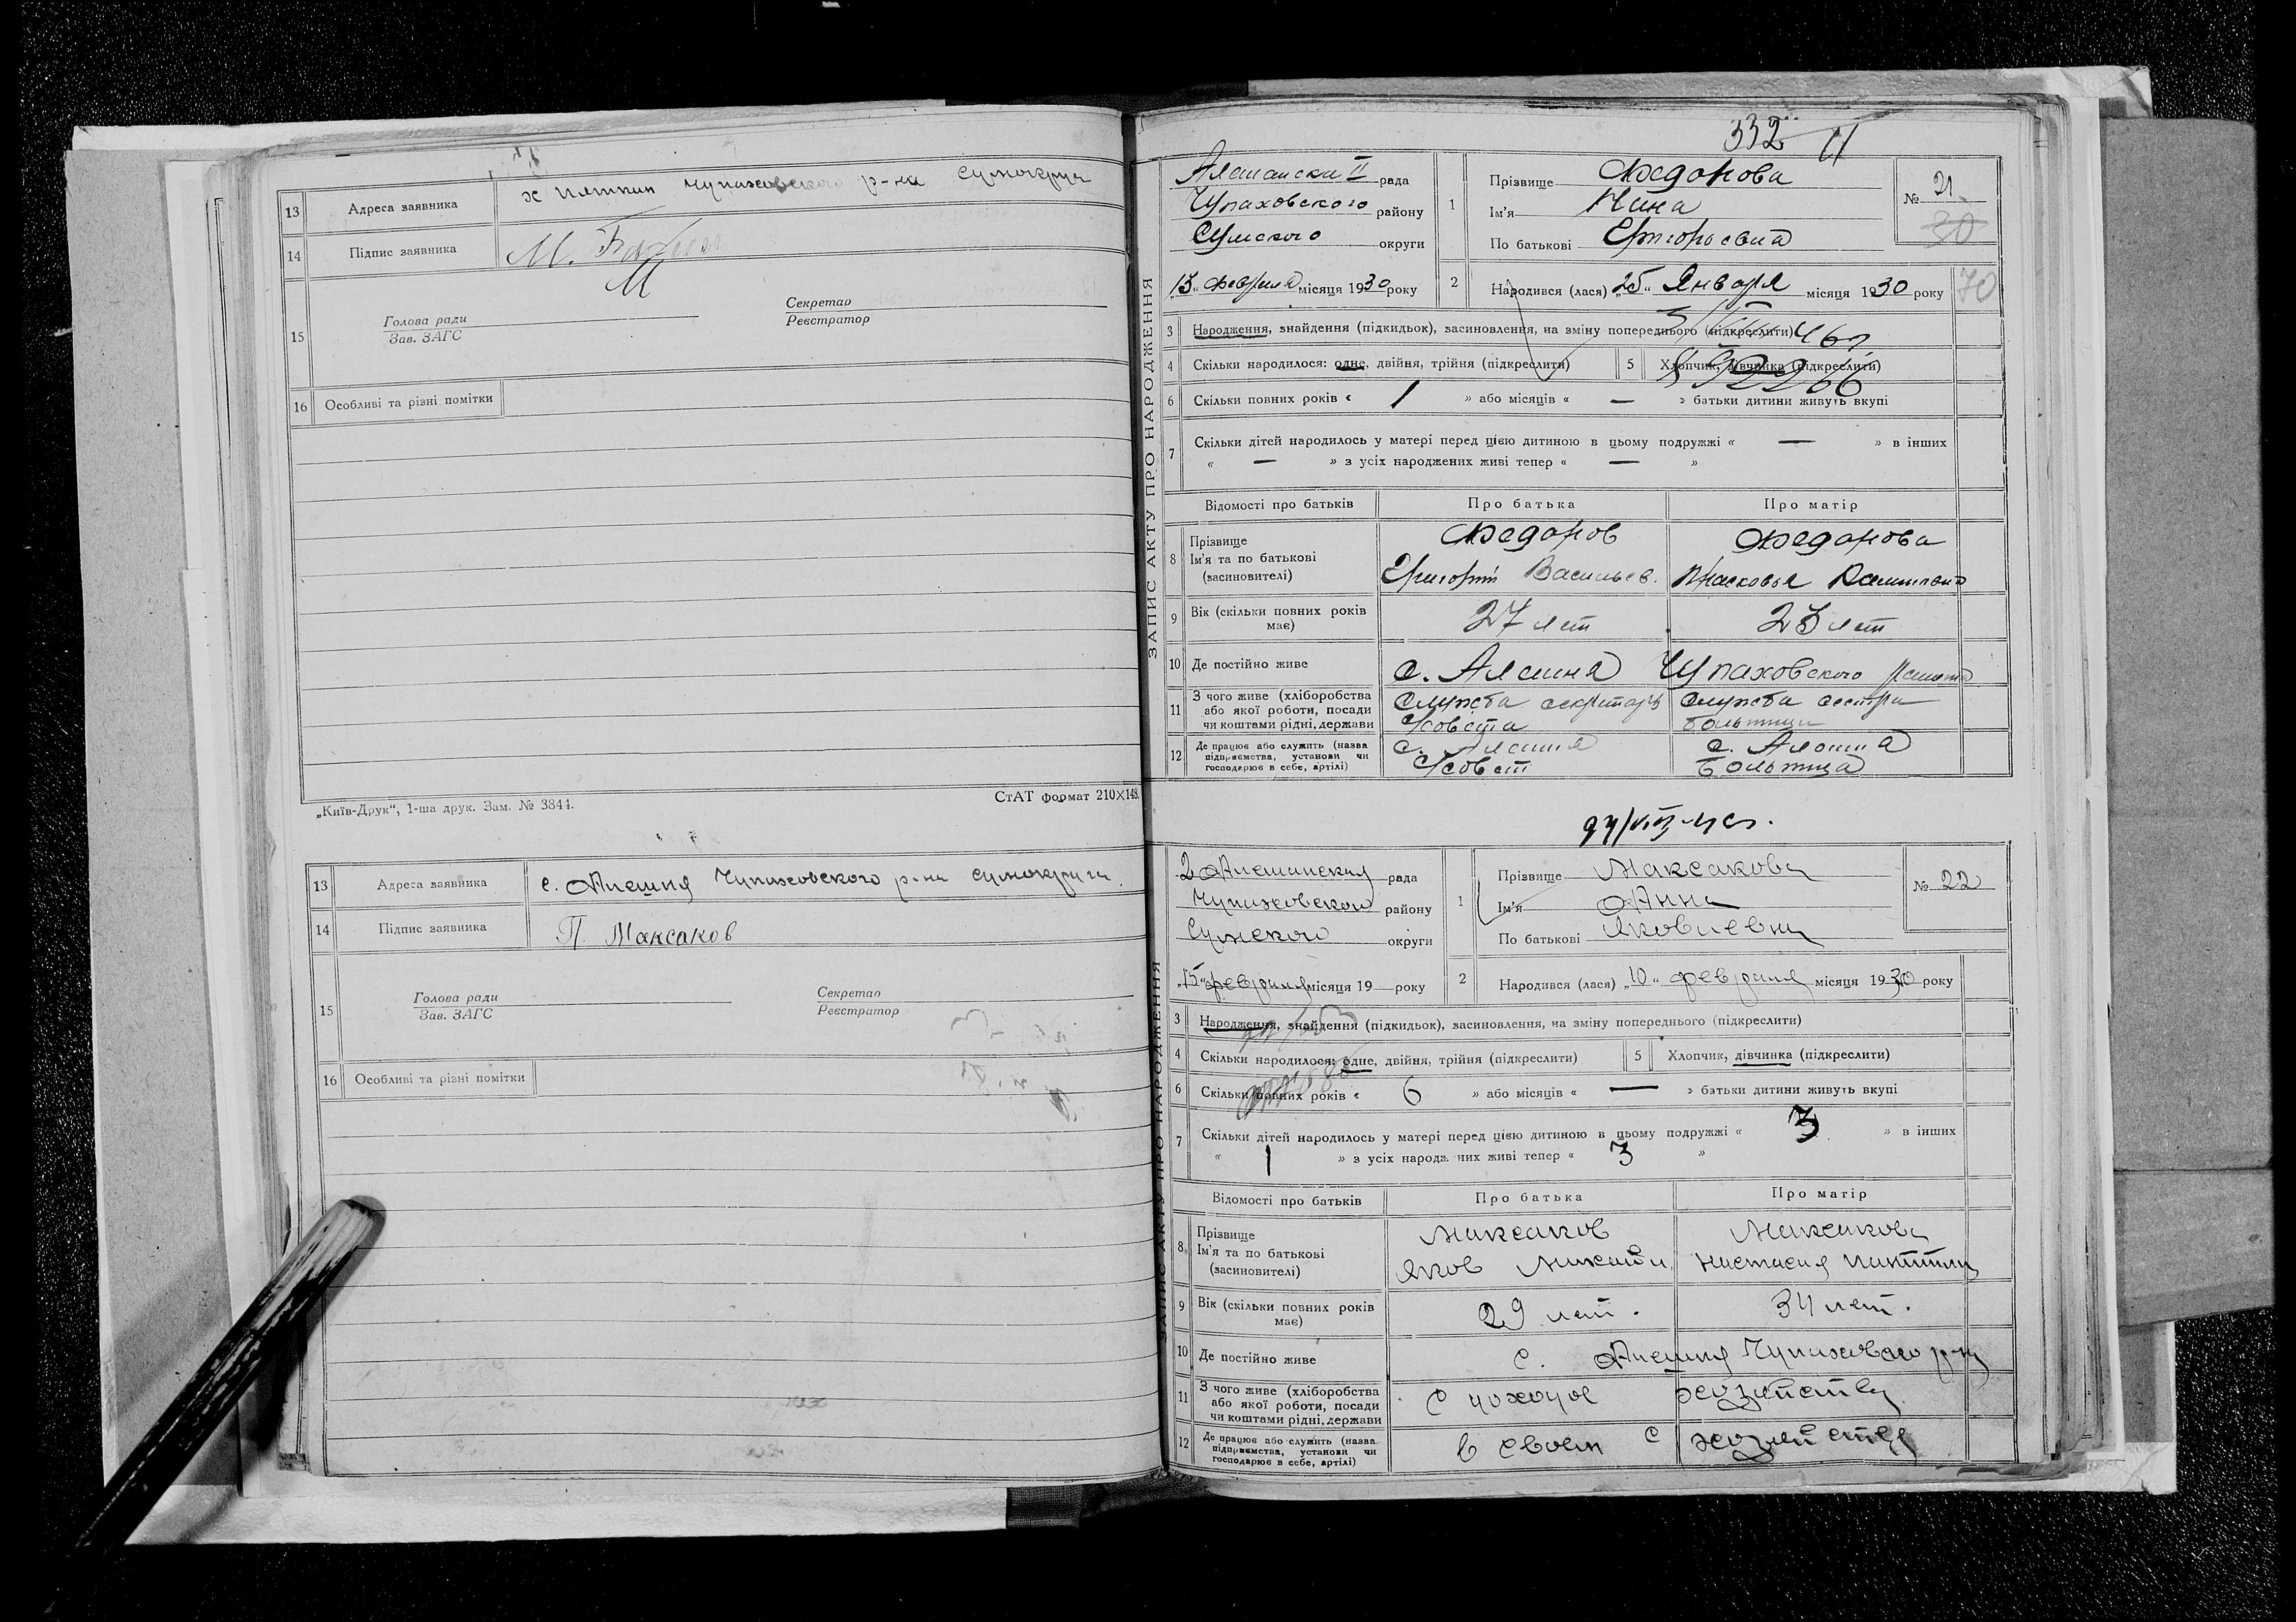 13 Адреса заявника х Пяткин Чупаховского р-на Сумокруги
14 Підпис заявника М.
15 Голова ради Секретар
Зав. ЗАГС Реєстратор
16 Особливі та різні помітки
„Київ-Друк“, 1-ша друк. Зам. № 3844. СтАТ формат 210×148.
13 Адреса заявника с. Алешня Чупаховского р-на Сумокруги.
14 Підпис заявника П. Максаков
15 Голова ради Секретар
Зав. ЗАГС Реєстратор
16 Особливі та різні помітки
332
ЗАПИС АКТУ ПРО НАРОДЖЕННЯ
Алешанска II рада
Чупаховского району
Сумского округи
1 Прізвище Федорова
Ім'я Нина
По батькові Григорьевна
№ 21
30
„15“ февраля місяця 1930 року
2 Народився (лася) „25“ Января місяця 1930 року
70
3 Народження, знайдення (підкидьок), засиновлення, на зміну попереднього (підкреслити)
4 Скільки народилося: одне, двійня, трійня (підкреслити) 5 Хлопчик, дівчинка (підкреслити)
6 Скільки повних років « 1 » або місяців « — » батьки дитини живуть вкупі
7 Скільки дітей народилось у матері перед цією дитиною в цьому подружжі « — » в інших
« — » з усіх народжених живі тепер « — »
Відомості про батьків Про батька Про матір
8 Прізвище Федоров Федорова
Ім'я та по батькові
(засновителі) Григорий Васильев. Прасковья
9 Вік (скільки повних років має) 27 лет 23 лет
10 Де постійно живе с. Алешня Чупаховского района
11 З чого живе (хліборобства або якої роботи, посади чи коштами рідні, держави служба секретарь с/совета служба сестра больницы
12 Де працює або служить (назва підприємства, установи чи господарює в себе, артілі) с. Алешня с/совет с. Алешня больница
ЗАПИС АКТУ ПРО НАРОДЖЕННЯ
2 Алешинская рада
Чупаховского району
Сумского округи
1 Прізвище Максакова
Ім'я Анна
По батькові Яковлевна
№ 22
„15“ февраля місяця 19 — року
2 Народився (лася) „10“ февраля місяця 1930 року
3 Народження, знайдення (підкидьок), засиновлення, на зміну попереднього (підкреслити)
4 Скільки народилося: одне, двійня, трійня (підкреслити) 5 Хлопчик, дівчинка (підкреслити)
6 Скільки повних років « 6 » або місяців « — » батьки дитини живуть вкупі
7 Скільки дітей народилось у матері перед цією дитиною в цьому подружжі « 3 » в інших
« 1 » з усіх народж них живі тепер « 3 »
Відомості про батьків Про батька Про матір
8 Прізвище Максаков Максакова
Ім'я та по батькові
(засиновителі) Яков Михайл. Настасия
9 Вік (скільки повних років має) 29 лет. 34 лет.
10 Де постійно живе с. Алешня Чупаховского р-на
11 З чого живе (хліборобства або якої роботи, посади чи коштами рідні, держави С доходов хозяйства
12 Де працює або служить (назва підприємства, установи чи господарює в себе, артілі) в своем с хозяйстве